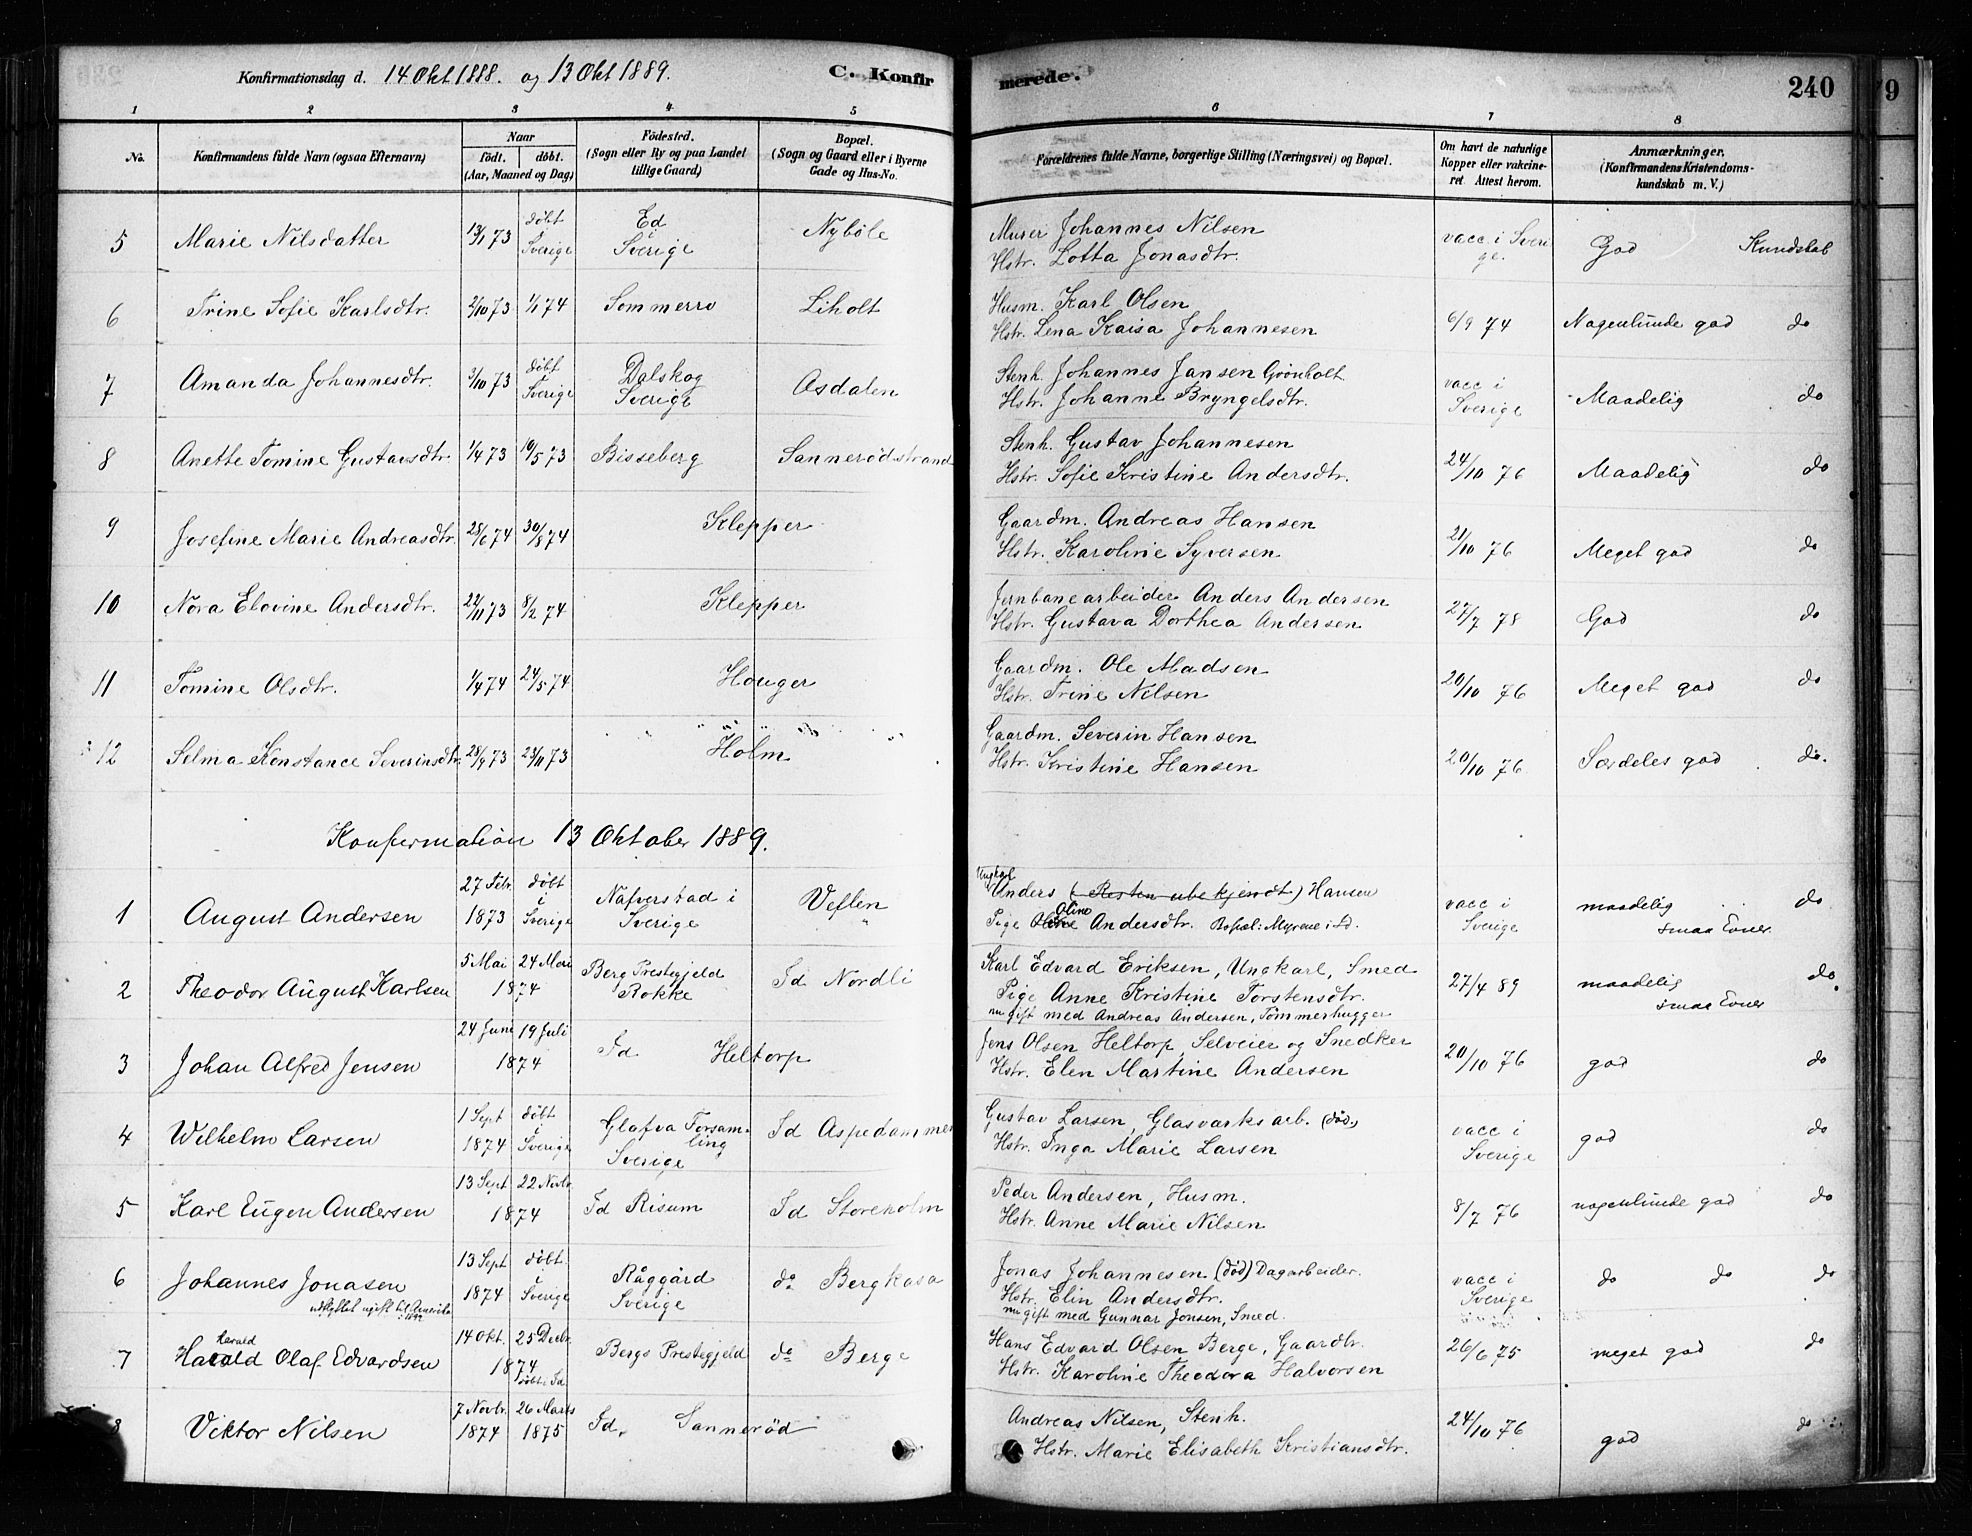 Konfirmationsdag d. 14 Okt 1888. og 13 Okt 1889. C. Konfirmerede. 240
1 2 3 4 5 6 7 8
No. Konfirmandens fulde Navn (ogsaa Efternavn) Naar født. døbt. (Aar, Maaned og Dag) Fødested. (Sogn eller By og paa Landet tillige Gaard) Bopæl. (Sogn og Gaard eller i Byerne Gade og Hus-No. Forældrenes fulde Navne, borgerlige Stilling (Næringsvei) og Bopæl. Om havt de naturlige Kopper eller vakcineret Attest herom. Anmærkninger, (Konfirmandens Kristendomskundskab m. V.)
5 Marie Nilsdatter 13/1 73 døbt i Sverige Ed i Sverige Nybøle Murer Johannes Nilsen Hstr. Lotta Jonasdtr. vacc i Sverige. God Kundskab
6 Trine Sofie Karlsdtr. 2/10 73 1/1 74 Sommerro Liholt Husm. Karl Olsen Hstr. Lena Kaisa Johannesen 6/9 74 Nogenlunde god do
7 Amanda Johannesdtr. 3/10 73 døbt i Sverige Dalskog Sverige Asdalen Stenh. Johannes Jansen Grönholt Hstr. Johanne Bryngelsdtr. vacc i Sverige Maadelig do
8 Anette Tomine Gustavsdtr. 1/4 73 10/5 73 Bisseberg Sannerødstrand Stenh. Gustav Johannesen Hstr. Sofie Kristine Andersdtr. 24/10 76 Maadelig do
9 Josefine Marie Andreasdtr. 28/6 74 30/8 74 Klepper Gaardm. Andreas Hansen Hstr. Karoline Syversen 21/10 76 Meget god do
10 Nora Elovine Andersdtr. 22/11 73 8/2 74 Klepper Jernbanearbeider Anders Andersen Hstr. Gustava Dorthea Andersen 27/7 78 God do
11 Tomine Olsdtr. 1/4 74 24/5 74 Houger Gaardm. Ole Madsen Hstr. Trine Nilsen 20/10 76 Meget god do
12 Selma Konstance Severinsdtr. 28/9 73 23/11 73 Holm Gaardm. Severin Hansen Hstr. Kristine Hansen 20/10 76 Særdeles god do.
Konfirmation 13 Oktober 1889.
1 August Andersen 27 Febr. 1873 døbt i Sverige Nafverstad i Sverige Veflen Ungkarl Anders (Resten ubekjendt) Hansen Pige Oline Andersdtr. Bopæl: Myrene i Id. vacc i Sverige maadelig smaa Evner do
2 Theodor August Karlsen 5 Mai 24 Mai 1874 Berg Prestegjeld Rokke Id Nordli Karl Edvard Eriksen, Ungkarl, Smed Pige Anne Kristine Torstensdtr. nu gift med Andreas Andersen, Tømmerhugger 27/4 89 maadelig smaa Evner do.
3 Johan Alfred Jensen 24 Juni 19 Juli 1874 Id Heltorp Jens Olsen Heltorp, Selveier og Snedker Hstr. Elen Martine Andersen 20/10 76 god do
4 Wilhelm Larsen 1 Sept 1874 døbt i Sverige Glafva Forsamling Sverige Id Aspedammen Gustav Larsen, Glasværksarb. (død) Hstr. Inga Marie Larsen vacc i Sverige god do
5 Karl Eugen Andersen 13 Sept 22 Novbr. 1874 Id Risum Id Storeholm Peder Andersen, Husm. Hstr. Anne Marie Nilsen 8/7 76 nogenlunde god do
6 Johannes Jonasen 13 Sept 1874 døbt i Sverige Råggärd Sverige do Bergkasa Jonas Johannesen (død) Dagarbeider. Hstr. Elin Andersdtr. nu gift med Gunnar Jonsen, Smed. vacc i Sverige do do do
7 Harald Harald Olaf Edvardsen 14 Okt. 25 Decbr. 1874 døbt i Id Bergs Prestegjeld do Berge Hans Edvard Olsen Berge, Gaardbr. Hstr. Karoline Theodora Halvorsen 26/6 75 meget god do
8 Viktor Nilsen 7 Novbr. 1874 26 Marts 1875 Id, Sannerød Andreas Nilsen, Stenh. Hstr. Marie Elisabeth Kristiansdtr. 24/10 76 god do